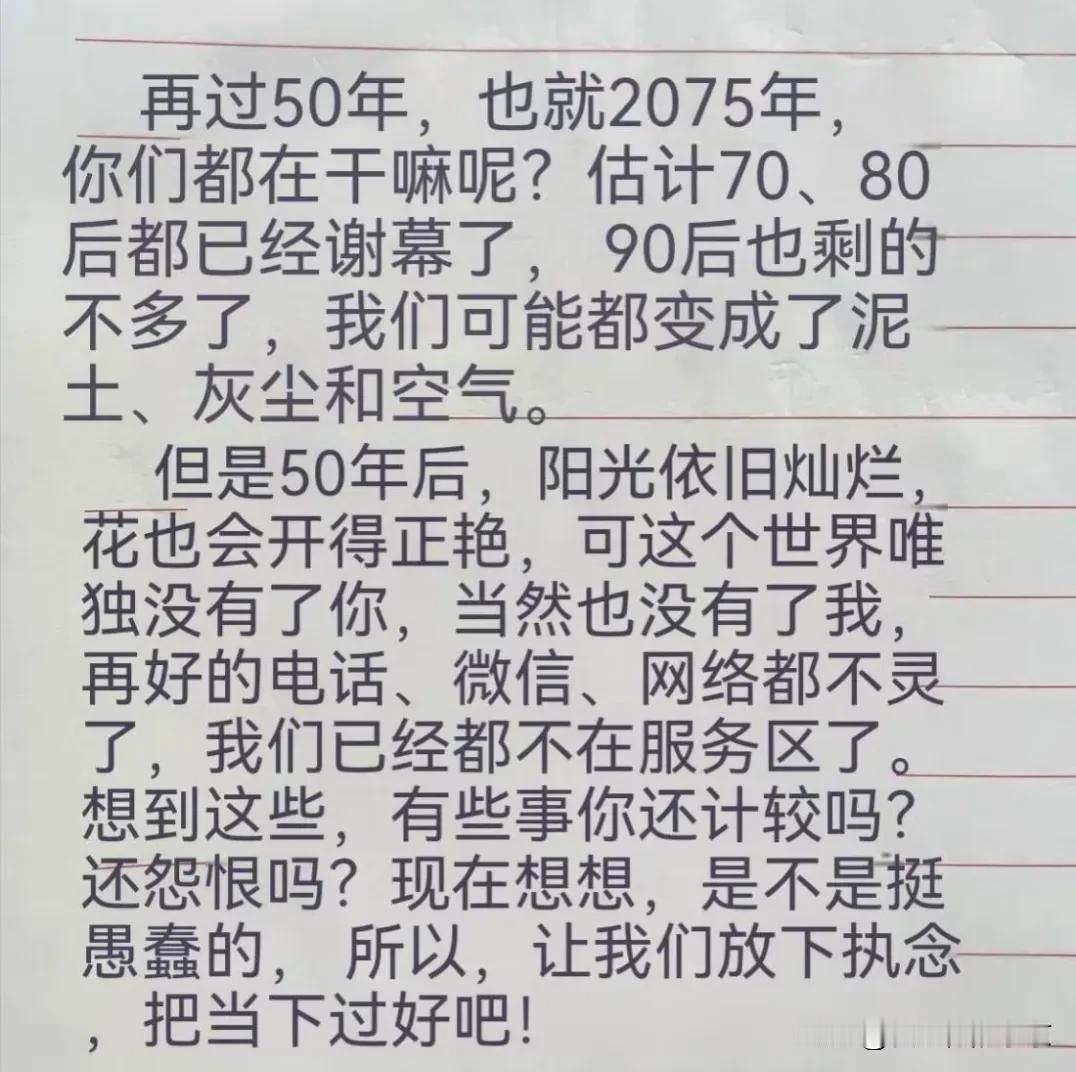 再过50年，也就2075年，
你们都在干嘛呢？估计70、80
后都已经谢幕了，90后也剩的
不多了，我们可能都变成了泥
土、灰尘和空气。
但是50年后，阳光依旧灿烂，
花也会开得正艳，可这个世界唯
独没有了你，当然也没有了我，
再好的电话、微信、网络都不灵
了，我们已经都不在服务区了。
想到这些，有些事你还计较吗？
还怨恨吗？现在想想，是不是挺
愚蠢的，所以，让我们放下执念
，把当下过好吧！